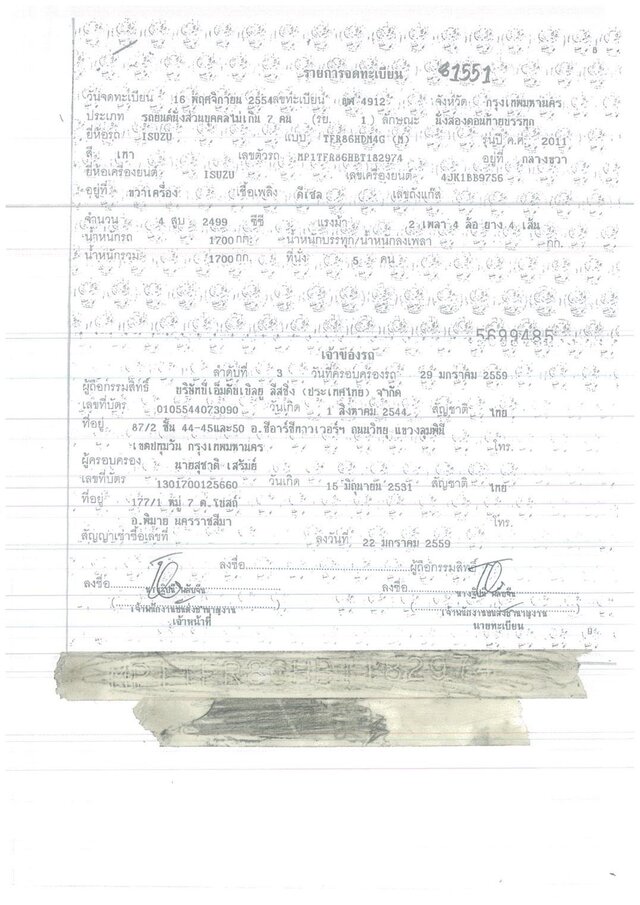 รายการจดทะเบียน 81551
วันจดทะเบียน 16 พฤศจิกายน 2554 เลขทะเบียน ฒฬ 4912 จังหวัด กรุงเทพมหานคร
ประเภท รถยนต์นั่งส่วนบุคคลไม่เกิน 7 คน (รย. 1) ลักษณะ นั่งสองตอนท้ายบรรทุก
ยี่ห้อรถ ISUZU แบบ TFR86HDM4G (M) รุ่นปี ค.ศ. 2011
สี เทา เลขตัวรถ MP1TFR86HBT182974 อยู่ที่ กลางขวา
ยี่ห้อเครื่องยนต์ ISUZU เลขเครื่องยนต์ 4JK1BB9756
อยู่ที่ ขวาเครื่อง เชื้อเพลิง ดีเซล เลขถังแก๊ส
จำนวน 4 สูบ 2499 ซีซี แรงม้า 2 เพลา 4 ล้อ ยาง 4 เส้น
น้ำหนักรถ 1700 กก. น้ำหนักบรรทุก/น้ำหนักลงเพลา กก.
น้ำหนักรวม 1700 กก. ที่นั่ง 5 คน
5699485
เจ้าของรถ
ลำดับที่ 3 วันที่ครอบครองรถ 29 มกราคม 2559
ผู้ถือกรรมสิทธิ์ บริษัทบีเอ็มดับเบิลยู ลีสซิ่ง (ประเทศไทย) จำกัด
เลขที่บัตร 0105544073090 วันเกิด 1 สิงหาคม 2544 สัญชาติ ไทย
ที่อยู่ 87/2 ชั้น 44-45และ50 อ.ซีอาร์ซีทาวเวอร์ฯ ถนนวิทยุ แขวงลุมพินี
เขตปทุมวัน กรุงเทพมหานคร โทร.
ผู้ครอบครอง นายสุชาติ เสรัมย์
เลขที่บัตร 1301700125660 วันเกิด 15 มิถุนายน 2531 สัญชาติ ไทย
ที่อยู่ 177/1 หมู่ 7 ต.โบสถ์
อ.พิมาย นครราชสีมา โทร.
สัญญาเช่าซื้อเลขที่ ลงวันที่ 22 มกราคม 2559
ลงชื่อ ผู้ถือกรรมสิทธิ์
ลงชื่อ ลงชื่อ
เจ้าพนักงานขนส่งชำนาญงาน เจ้าพนักงานขนส่งชำนาญงาน
เจ้าหน้าที่ นายทะเบียน